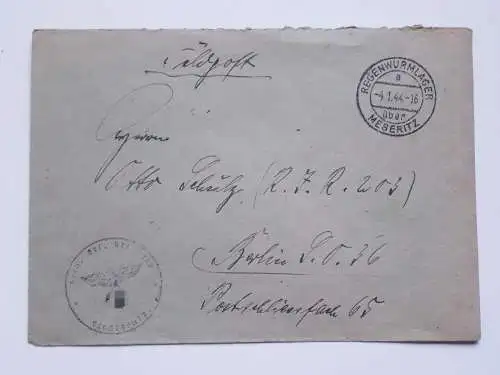 Feldpost
REGENWURMLAGER
a
-4.1.44.-16
über
MESERITZ
Herrn
Otto Schulz (R.J.R. 203)
Berlin S.O. 36
Postschliessfach 65